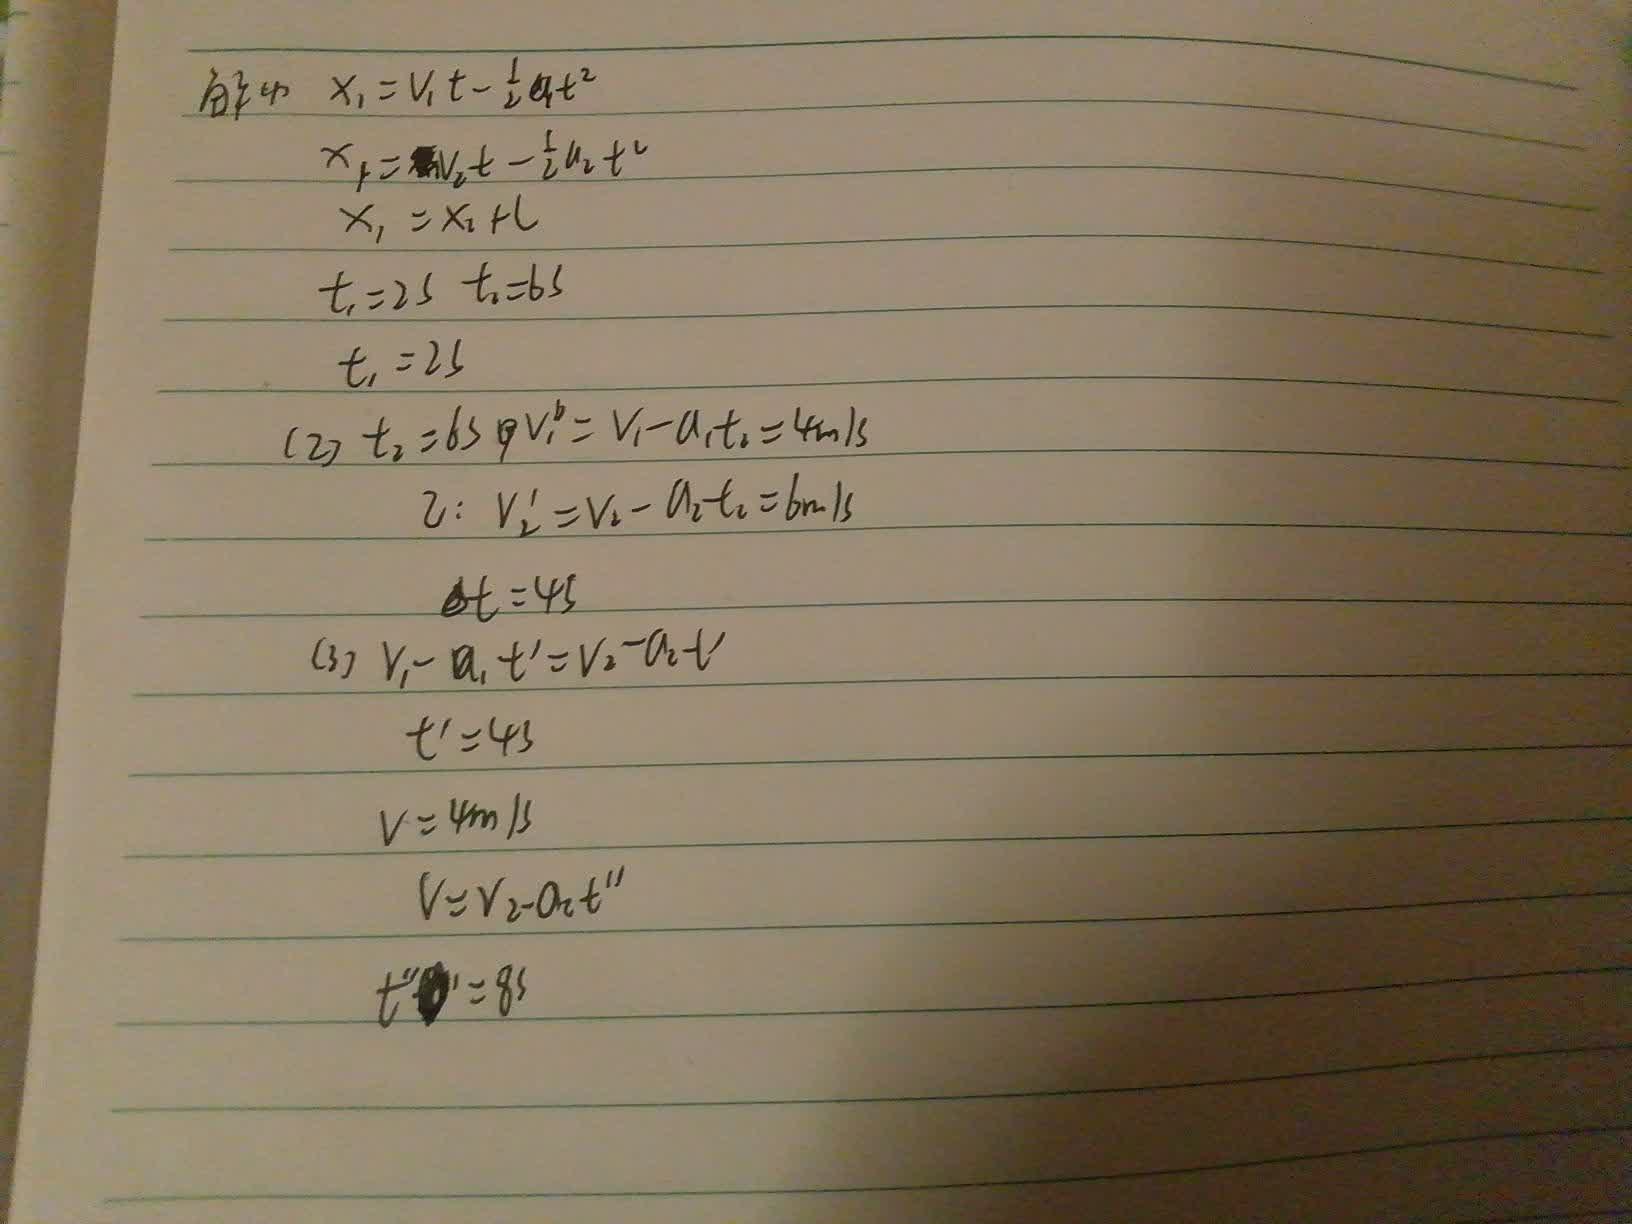 解(1) x₁=v₁t-½a₁t²
x₂=v₂t-½a₂t²
x₁=x₂+L
t₁=2s t₂=6s
t₁=2s
(2) t₂=6s 甲v₁'=v₁-a₁t₂=4m/s
乙: v₂'=v₂-a₂t₂=6m/s
Δt=4s
(3) v₁-a₁t'=v₂-a₂t'
t'=4s
v=4m/s
v=v₂-a₂t"
t"=8s